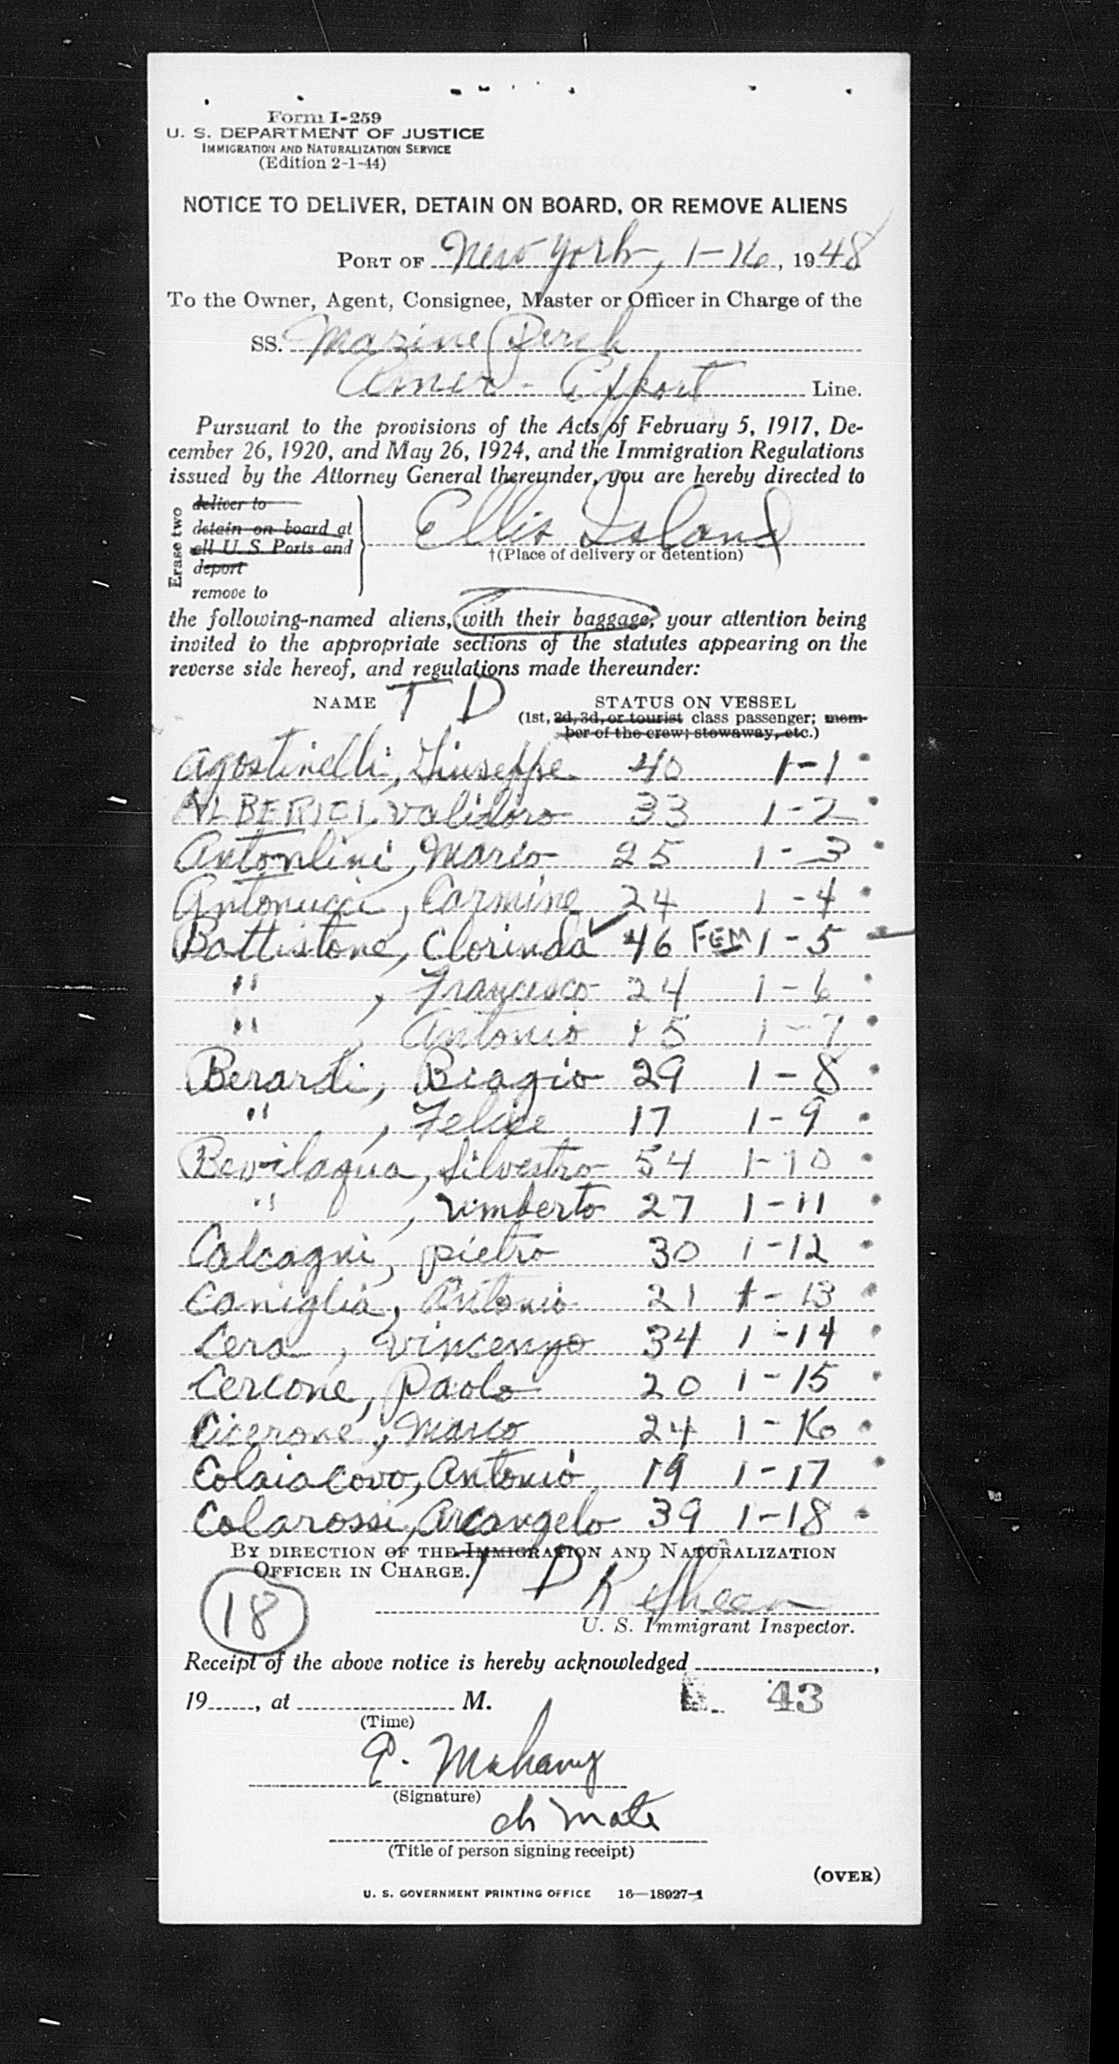 Form I-259
U. S. DEPARTMENT OF JUSTICE
IMMIGRATION AND NATURALIZATION SERVICE
(Edition 2-1-44)
NOTICE TO DELIVER, DETAIN ON BOARD, OR REMOVE ALIENS
PORT OF New York, 1-16, 1948
To the Owner, Agent, Consignee, Master or Officer in Charge of the
SS. Marine Perch
Amer - Export Line.
Pursuant to the provisions of the Acts of February 5, 1917, De-
cember 26, 1920, and May 26, 1924, and the Immigration Regulations
issued by the Attorney General thereunder, you are hereby directed to
Erase two
deliver to
detain on board at
all U. S. Ports and
deport
remove to
Ellis Island
†(Place of delivery or detention)
the following-named aliens, with their baggage, your attention being
invited to the appropriate sections of the statutes appearing on the
reverse side hereof, and regulations made thereunder:
NAME T D STATUS ON VESSEL
(1st, 2d, 3d, or tourist class passenger; mem-
ber of the crew; stowaway, etc.)
Agostinelli, Giuseppe 40 1-1
ALBERICI, Validoro 33 1-2
Antonlini, Marco 25 1-3
Antonucci, Carmine 24 1-4
Battistone, Clorinda ✓ 46 FEM 1-5
" , Francesco 24 1-6
" , Antonio 15 1-7
Berardi, Biagio 29 1-8
" , Felice 17 1-9
Bevilaqua, Silvestro 54 1-10
" , Umberto 27 1-11
Calcagni, Pietro 30 1-12
Caniglia, Antonio 21 1-13
Cera, Vincenzo 34 1-14
Cercone, Paolo 20 1-15
Cicerone, Marco 24 1-16
Colaiacovo, Antonio 19 1-17
Colarossi, Arcangelo 39 1-18
BY DIRECTION OF THE IMMIGRATION AND NATURALIZATION
OFFICER IN CHARGE. T D
18
U. S. Immigrant Inspector.
Receipt of the above notice is hereby acknowledged
19 , at M.
43
(Time)
(Signature)
ch mate
(Title of person signing receipt)
(OVER)
U. S. GOVERNMENT PRINTING OFFICE 16—18927-1